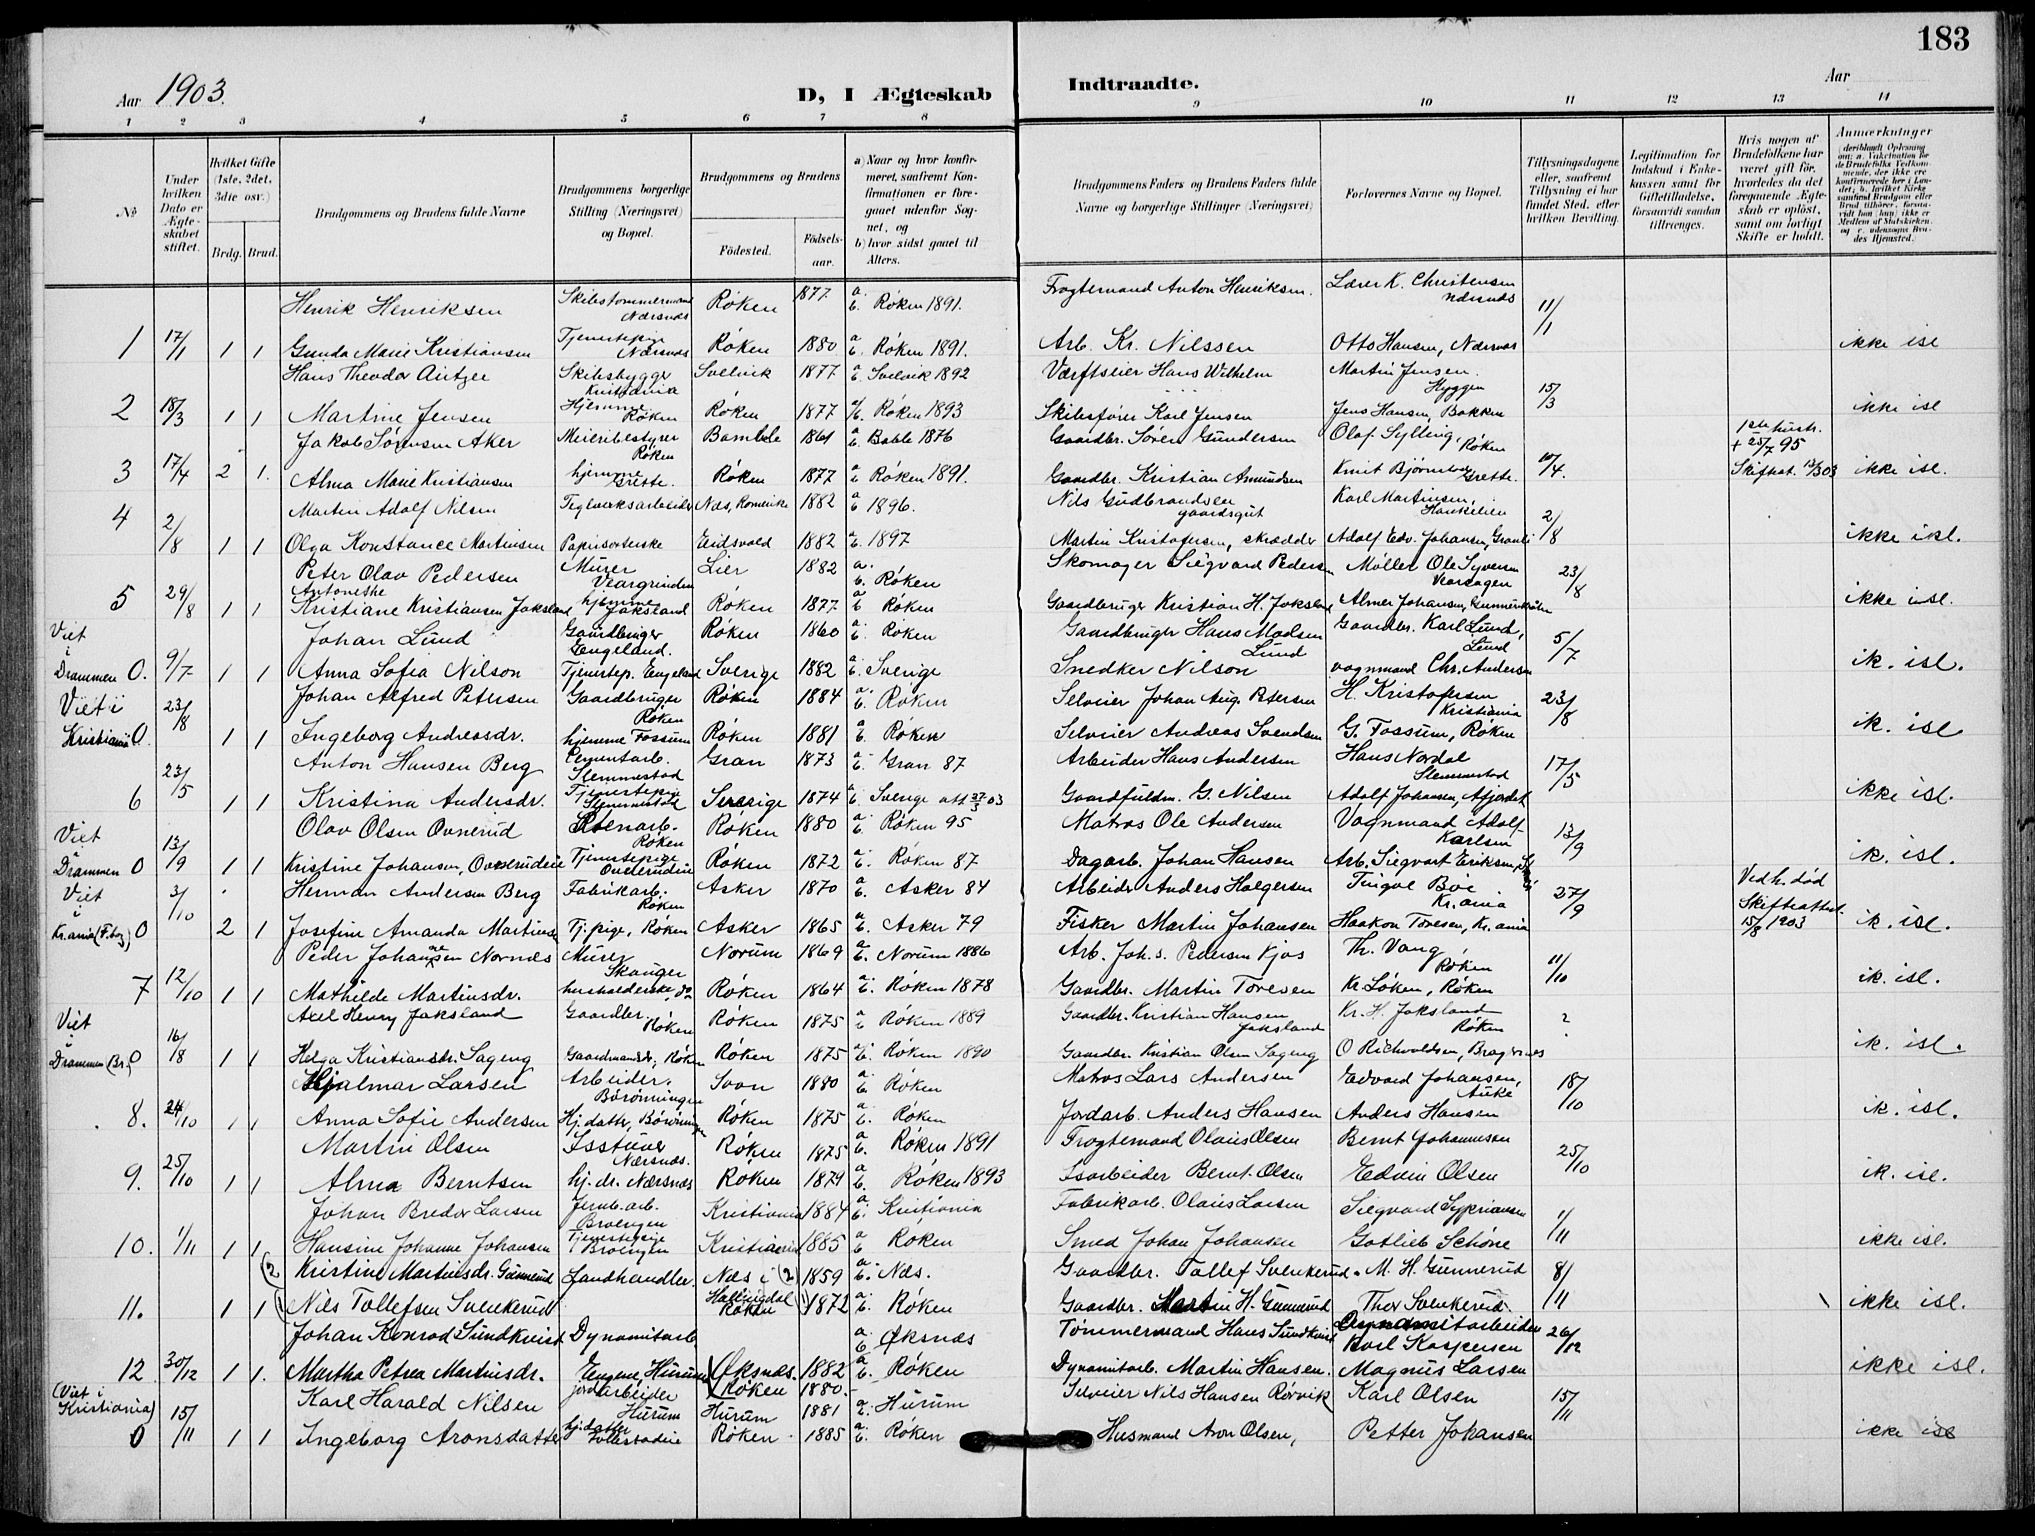 183
Aar 1903. D, I Ægteskab Indtraadte. Aar
1 2 3 4 5 6 7 8 9 10 11 12 13 14
No
Under hvilken Dato er Ægteskabet stiftet.
Hvilket Gifte (1ste, 2det, 3die osv.)
Brdg. Brud.
Brudgommens og Brudens fulde Navne
Brudgommens borgerlige Stilling (Næringsvei) og Bopæl.
Brudgommens og Brudens
Fødested. Fødselsaar.
a) Naar og hvor konfirmeret, saafremt Konfirmationen er foregaaet udenfor Sognet, og
b) hvor sidst gaaet til Alters.
Brudgommens Faders og Brudens Faders fulde Navne og borgerlige Stillinger (Næringsvei)
Forlovernes Navne og Bopæl.
Tillysningsdagene eller, saafremt Tillysning ei har fundet Sted, efter hvilken Bevilling.
Legitimation for Indskud i Enkekassen samt for Giftetilladelse, forsaavidt saadan tiltrænges.
Hvis nogen af Brudefolkene har været gift før, hvorledes da det foregaaende Ægteskab er opløst, samt om lovligt Skifte er holdt.
Anmærkninger (deriblandt Oplysning om: a. Vakcination for de Brudefolks Vedkommende, der ikke ere konfirmerede her i Landet; b. hvilket Kirkesamfund Brudgom eller Brud tilhører, forsaavidt han (hun) ikke er Medlem af Statskirken, og c. udensogns Brudes Hjemsted.
Henrik Henriksen Skibstømmermand Nærsnæs Røken 1877 a. b. Røken 1891. Fragtemand Anton Henriksen. Lærer K. Christensen Nærsnæs 11/1
1 17/1 1 1 Gunda Marie Kristiansen Tjenestepige Nærsnæs Røken 1880 a b. Røken 1891. Arb. Kr. Nilssen Otto Hansen, Nærsnæs ikke isl
Hans Theodor Skibsbygger Kristiania Svelvik 1877 a b. Svelvik 1892 Værftseier Hans Wilhelm Martin Jensen. Hyggen 15/3
2 18/3 1 1 Martine Jensen Hjemme Røken Røken 1877 a/b. Røken 1893 Skibsfører Karl Jensen Jens Hansen, Bakken ikke isl
Jakob Sørensen Aker Meieribestyrer Røken Bamble 1861 a b. Bable 1876 Gaardbr. Sören Gundersen Olaf Sylling, Røken 1ste hustr. + 25/7 95
3 17/4 2 1. Alma Marie Kristiansen hjemme Grette. Røken 1877 a b Røken 1891. Gaardbr. Kristian Amundsen Knut Bjørnstad Grette. 10/4. Skifteat. 13/3 03 ikke isl.
4 Marten Adolf Nilsen Teglverksarbeider Næs, Romerike 1882 a b 1896. Nils Gudbrandsen gaardsgut Karl Martinsen, 2/8
2/8 1 1 Olga Konstance Martinsen Papirsorterske Eidsvold 1882 a b. 1897 Martin Kristofersen, skrædder Adolf Edv. Johansen, Granli ikke isl.
Peter Olav Pedersen Murer Veargrinden Lier 1882 a. b. Røken Skomager Siegvard Pedersen Møller Ole Syversen 23/8
5 29/8 1 1 Antoneske Kristiane Kristiansen Jaksland hjemme Jaksland Røken 1877 a b Røken Gaardbruger Kristian H. Jaksland Almer Johansen, ikke isl.
Viet i Johan Lund Gaardbruger Engeland. Røken 1860 a b. Røken Gaardbruger Hans Madsen Lund Gaardbr. Karl Lund, Lund 5/7
Drammen 0. 9/7 1 1 Anna Sofia Nilson Tjenestep. Engeland Sverige 1882 a b. Sverige Snedker Nilson vognmand Chr. Andersen ik. isl.
Viet i 23/8 Johan Alfred Petersen Gaardbruger Røken Røken 1884 a. b. Røken Selveier Johan Aug. Petersen H. Kristofersen Kristiania 23/8
Kristiania 0. 1 1 Ingeborg Andreasdr. hjemme Fossum Røken 1881 a b. Røken Selveier Andreas Svendsen G. Fossum, Røken ik. isl
Anton Hansen Berg Cementarb. Slemmestad Gran 1873 a b. Gran 87 Arbeider Hans Andersen Hans Nordal Slemmestad 17/5
6 23/5 1 1 Kristina Andersdr. Tjenestepige Slemmestad Sverige 1874 a b. Sverige att 27/3 03 Gaardfuldm. G. Nilsen Adolf Johansen, ikke isl.
Viet i Olav Olsen Ovnerud Stenarb. Røken Røken 1880 a b. Røken 95 Matros Ole Andersen Vognmand Adolf Karlsen 13/9
Drammen 0 13/9 1 1 Kristine Johansen, Ovnerudeie Tjenestepige Ovnerudeie Røken 1872 a. b. Røken 87 Dagarb. Johan Hansen Arb. Siegvart Eriksen, ik. isl.
Viet i 3/10 Herman Andersen Berg Fabrikarb. Røken Asker 1870 a b. Asker 84 Arbeider Anders Holgersen Tingvel Böe Kr.ania 27/9 Ved h. død
Kr.ania (F. bog) 0 2 1 Josefine Amanda Martinsen Tj. pige, Røken Asker 1865 a b. Asker 79 Fisker Martin Johansen Haakon Toresen, Kr.ania Skifteattest. 15/8 1903 ik. isl.
Peder Johannesen Nornæs Murer Skauger Norum 1869 a. b. Norum 1886 Arb. Joh. s. Pedersen Kjos Th. Vang, Røken 11/10
7 12/10 1 1 Mathilde Martinsdr. husholderske, do Røken 1864 a. b. Røken 1878 Gaardbr. Martin Toresen Kr. Löken, Røken ik. isl.
Viet i Axel Henry Jaksland Gaardbr. Røken Røken 1875 a b Røken 1889 Gaardbr. Kristian Hansen Jaksland Kr. H. Jaksland Røken ?
Drammen (Br.) 0 16/8 1 1 Helga Kristiansdr. Sageng Gaardmandsdr, Røken Røken 1875 a b. Røken 1890 Gaardbr. Kristian Olsen Sageng O Richvoldsen, Bragernes ik. isl.
Hjalmar Larsen Arbeider. Börönningen Svon 1880 a. b. Røken Matros Lars Andersen Edvard Johansen, Auke 18/10
8. 24/10 1 1 Anna Sofie Andersen Hj. datter, Börönningen Røken 1875 a. b. Røken Jordarb. Anders Hansen Anders Hansen ik. isl.
Martin Olsen Isstuver Nærsnæs. Røken 1875 a b. Røken 1891 Fragtemand Olaus Olsen Bernt Johannesen 25/10
9. 25/10 1 1 Alma Berntsen hj. dr. Nærsnæs Røken 1879 a b. Røken 1893 Isarbeider Bernt Olsen Edvin Olsen ik. isl.
Johan Breder Larsen Jernb. arb. Braengen Kristiania 1884 a b. Kristiania Fabrikarb. Olaus Larsen Siegvard Sypriansen 1/11
10. 1/11 1 1 Hansine Johanne Johansen Tjenestepige Braengen Kristiania 1885 a b Røken Smed Johan Johansen Gotlieb Schöne ikke isl.
(2 Kristine Martinsdr. Gunnerud Landhandler. Næs i (2 1859 a b. Næs. Gaardbr. Tollef Svenkerud. M. H. Gunnerud 8/11
11. 1 1 (1 Nils Tollefsen Svenkerud Hallingdal Røken 1) 1872 a. b. Røken Gaardbr. Martin H. Gunnerud Thor Svenkerud. ikke isl.
Johan Konrad Sundkvist Dynamitarb a. b. Øksnæs Tømmermand Hans Sundkvist Dynamitarbeider Karl Kaspersen 26/12
12. 30/12 1 1. Martha Petrea Martinsdr. Engene, Hurum Øksnæs. Røken 1882 1880. a b. Røken Dynamitarb. Martin Hansen. Magnus Larsen ikke isl.
(Viet i Kristiania) Karl Harald Nilsen jordarbeider Hurum Hurum 1881 a b. Hurum Selveier Nils Hansen Rørvik Karl Olsen 15/11
0 15/11 1 1 Ingeborg Aronsdatter hj. datter Røken 1885 a. b. Røken Husmand Aron Olsen, Petter Johansen ikke isl